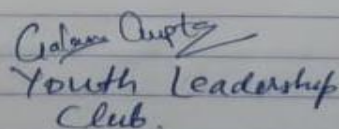 Gupta
Youth Leadership
Club.